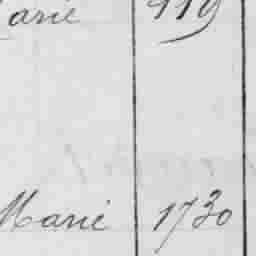 Marie 119
Marie 1730